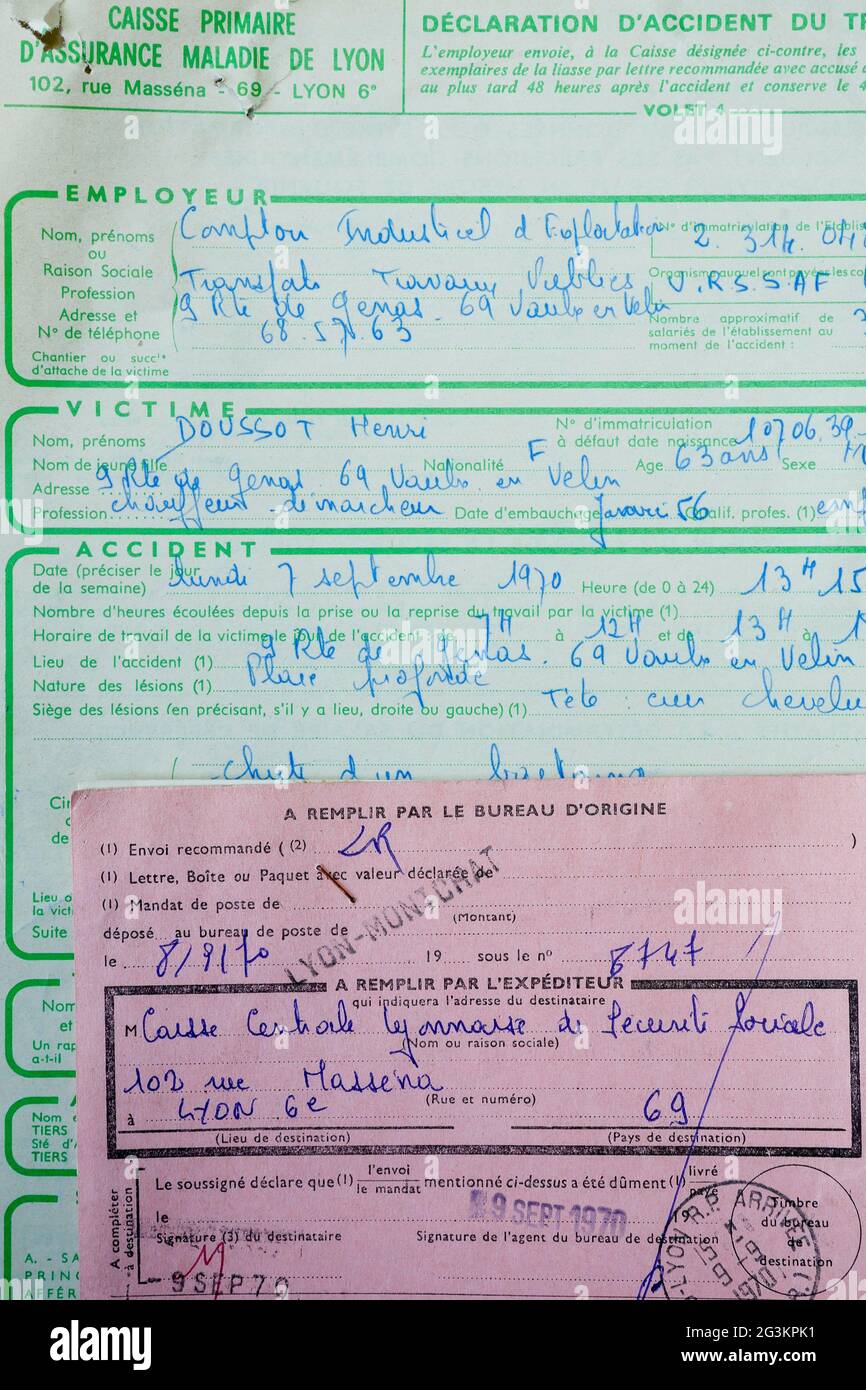 CAISSE PRIMAIRE
D'ASSURANCE MALADIE DE LYON
102, rue Masséna - 69 - LYON 6°
DÉCLARATION D'ACCIDENT DU
L'employeur envoie, à la Caisse désignée ci-contre, les
exemplaires de la liasse par lettre recommandée avec accusé
au plus tard 48 heures après l'accident et conserve le 4
VOLET 4
EMPLOYEUR
Nom, prénoms
ou
Raison Sociale
Profession
Adresse et
N° de téléphone
Chantier ou succ^le
d'attache de la victime
Industriel d'
Transports Travaux Publics
9 Rte de Genas. 69 Vaulx en Velin
68.57.63
N° d'immatriculation de l'Établis
2. 314. 04
Organisme auquel sont payées les co
U.R.S.S.A.F
Nombre approximatif de
salariés de l'établissement au
moment de l'accident :
VICTIME
Nom, prénoms DOUSSOT Henri
N° d'immatriculation
à défaut date naissance 10706.39
Nom de jeune fille Nationalité F Age 63 ans Sexe
Adresse 9 Rte de Genas 69 Vaulx en Velin
Profession chauffeur démarcheur Date d'embauchage Janvier 56 Qualif. profes. (1)
ACCIDENT
Date (préciser le jour
de la semaine) lundi 7 septembre 1970 Heure (de 0 à 24) 13 H 15
Nombre d'heures écoulées depuis la prise ou la reprise du travail par la victime (1)
Horaire de travail de la victime le jour de l'accident : de 7H à 12H et de 13H à 1
Lieu de l'accident (1) 9 Rte de Genas. 69 Vaulx en Velin
Nature des lésions (1) Plaie profonde
Siège des lésions (en précisant, s'il y a lieu, droite ou gauche) (1) Tête : cuir chevelu
chute d'un
Lieu o
la victi
Suite
Nom
et
Un rap
a-t-il
Nom e
TIERS
Sté d'A
TIERS
A. - SA
PRINC
AFFÉR
A REMPLIR PAR LE BUREAU D'ORIGINE
(1) Envoi recommandé ( (2) LR )
(1) Lettre, Boîte ou Paquet avec valeur déclarée de
(1) Mandat de poste de
(Montant)
déposé au bureau de poste de
LYON-MONTCHAT
le 8/9/70 19 sous le n° 8747
A REMPLIR PAR L'EXPÉDITEUR
qui indiquera l'adresse du destinataire
M Caisse Centrale Lyonnaise de Sécurité Sociale
(Nom ou raison sociale)
102 rue Masséna
(Rue et numéro)
à LYON 6e 69
(Lieu de destination) (Pays de destination)
A compléter
à destination
Le soussigné déclare que (1) l'envoi
le mandat mentionné ci-dessus a été dûment (1) livré
payé
le 9 SEPT 1970 19
Signature (3) du destinataire
Signature de l'agent du bureau de destination
Timbre
du bureau
de
destination
LYON R.P. ARRIVÉE
- 9 SEP 70
alamy
Image ID: 2G3KPK1
www.alamy.com